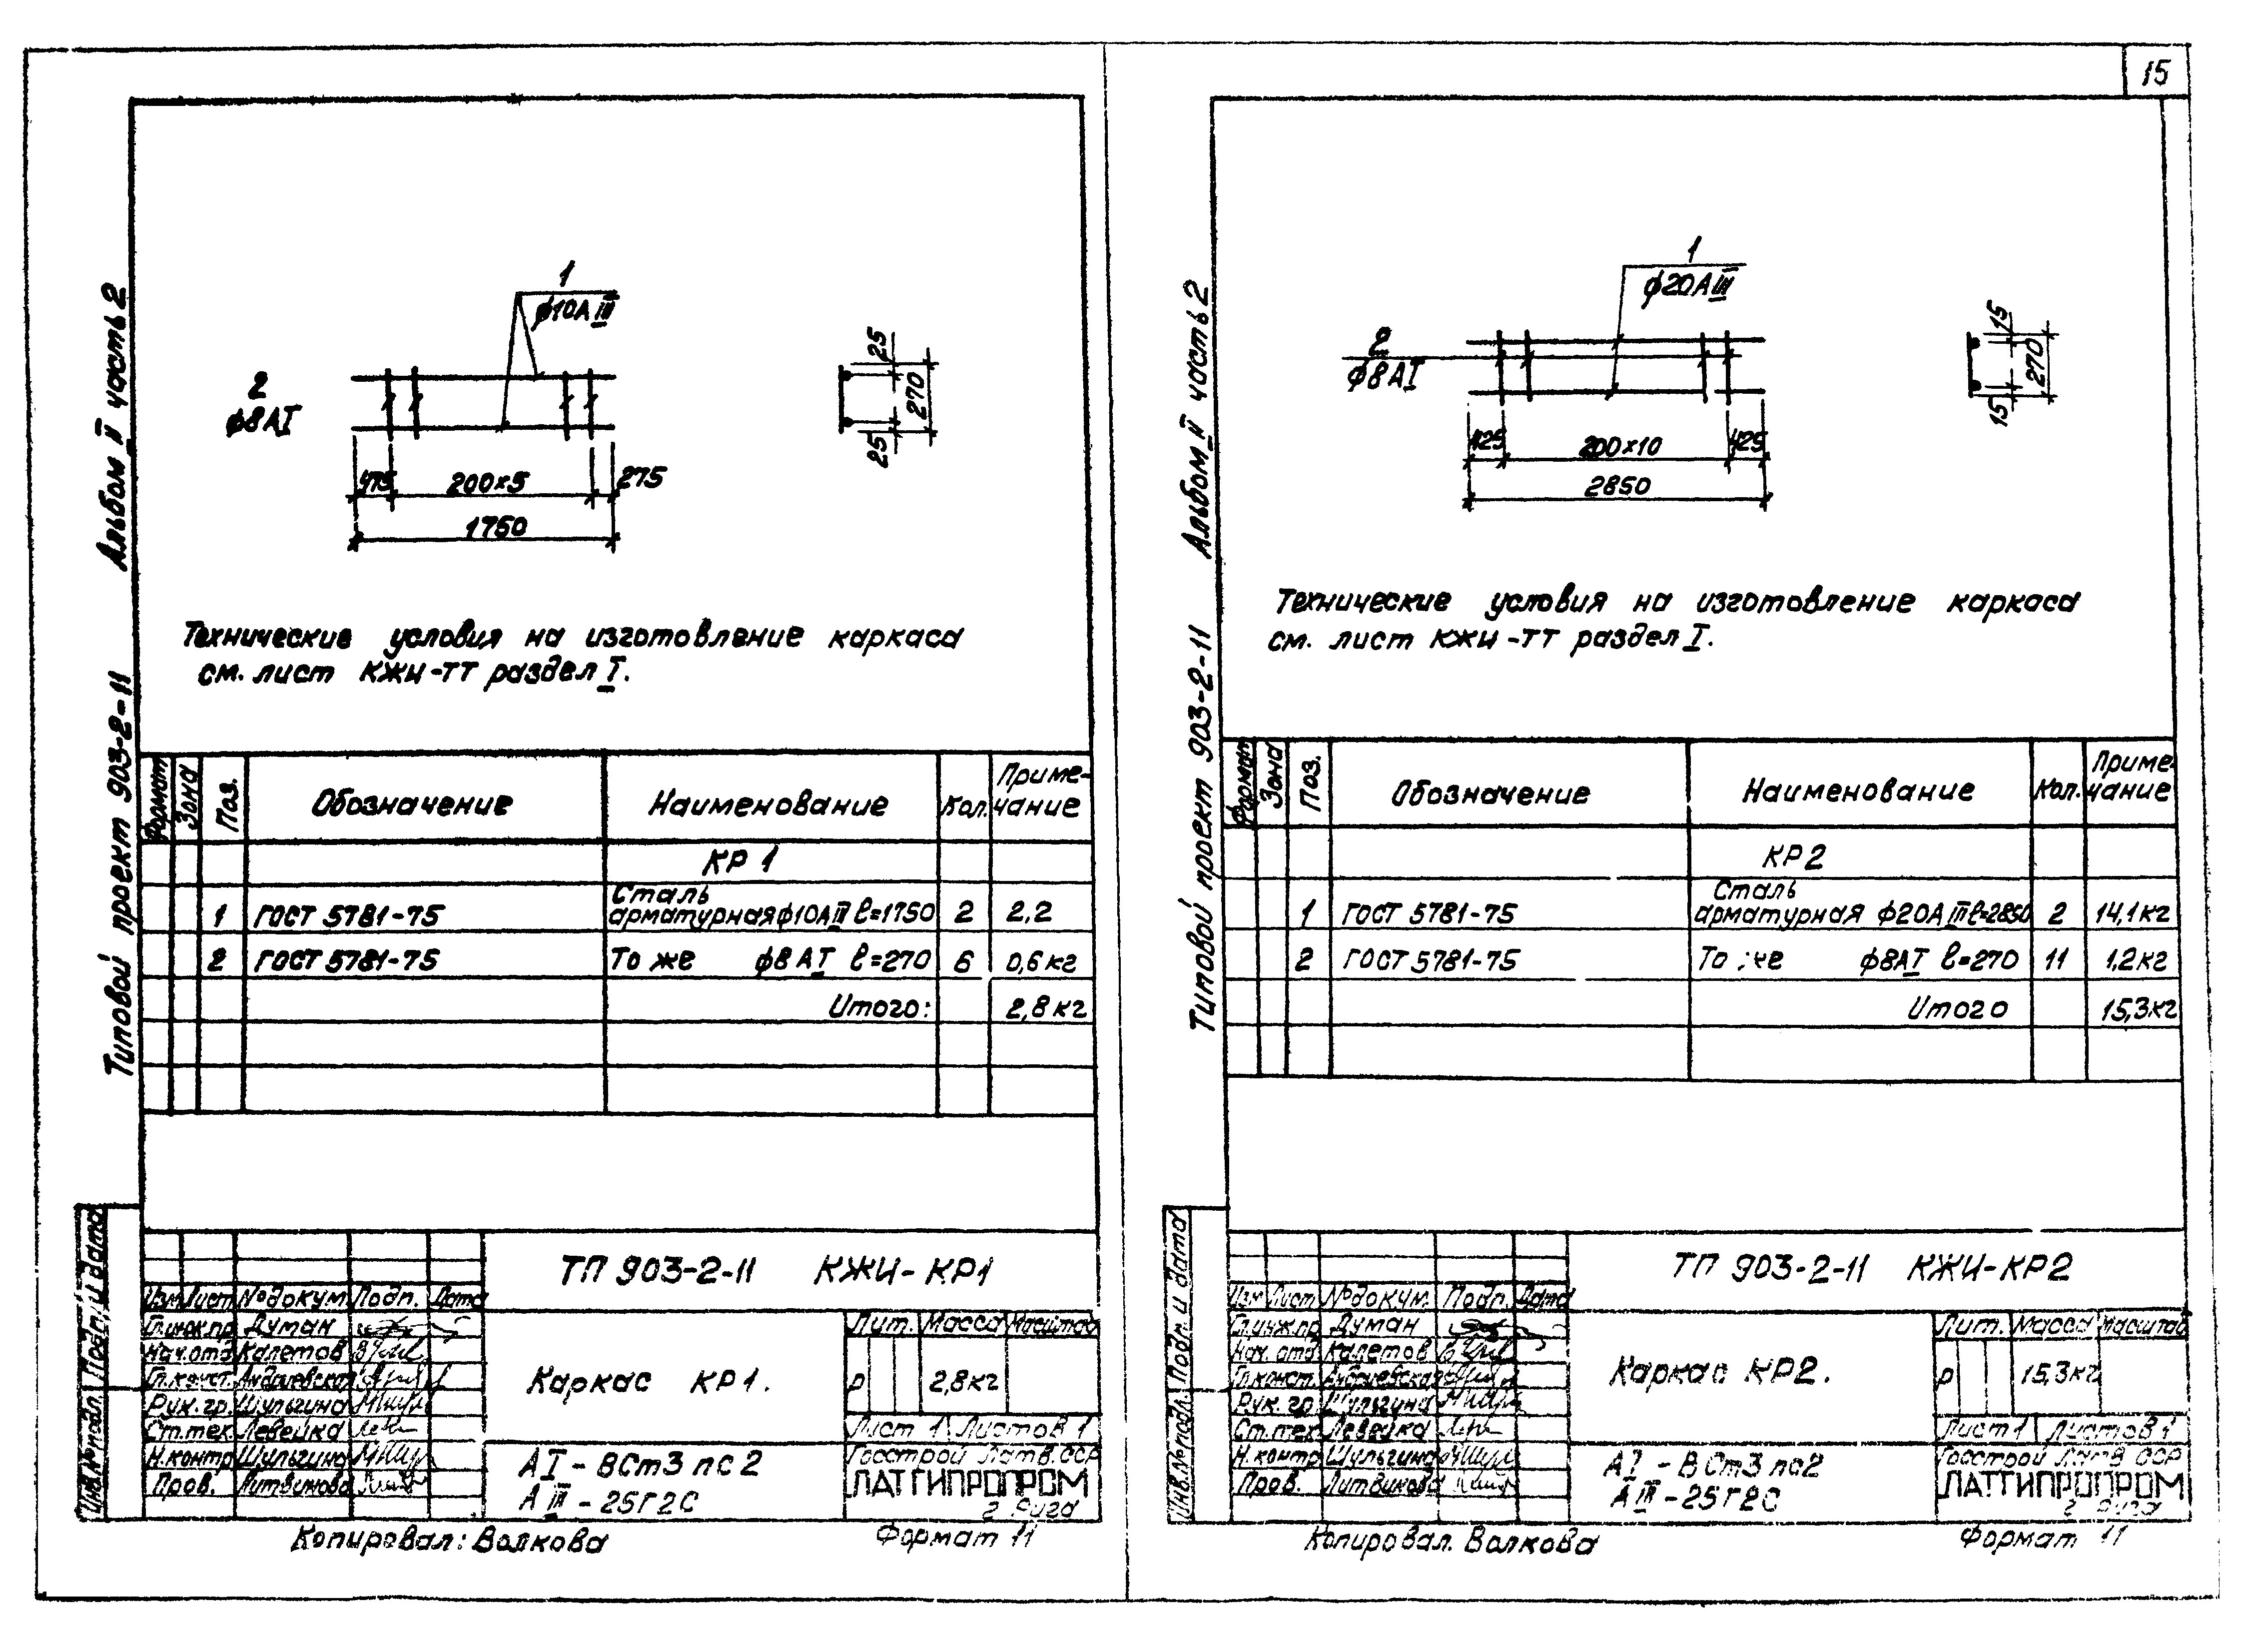 15
Типовой проект 903-2-11 Альбом II часть 2
1
ф10АIII
2
ф8АI
475
200×5
275
1750
25
270
25
Технические условия на изготовление каркаса
см. лист КЖИ-ТТ раздел I.
Формат Зона Поз. Обозначение Наименование Кол. Приме-
чание
КР 1
Сталь
1 ГОСТ 5781-75 арматурная ф10АIII ℓ=1750 2 2,2
2 ГОСТ 5781-75 То же ф8АI ℓ=270 6 0,6кг
Итого: 2,8кг
Подп. и дата
Инв.№подл.
ТП 903-2-11 КЖИ-КР1
Изм Лист №докум. Подп. Дата
Гл.инж.пр. Думан
Нач.отд Калетов
Гл.конст. Андриевская
Рук.гр. Шульгина
Ст.тех. Левейка
Н.контр Шульгина
Пров. Литвинова
Каркас КР1.
Лит. Масса Масштаб
Р 2,8кг
Лист 1 Листов 1
АI-ВСт3пс2
АIII-25Г2С
Госстрой Латв.ССР
ЛАТГИПРОПРОМ
г. Рига
Копировал: Волкова Формат 11
Типовой проект 903-2-11 Альбом II часть 2
1
ф20АIII
2
ф8АI
425
200×10
425
2850
15
270
15
Технические условия на изготовление каркаса
см. лист КЖИ-ТТ раздел I.
Формат Зона Поз. Обозначение Наименование Кол. Приме-
чание
КР2
Сталь
1 ГОСТ 5781-75 арматурная ф20АIII ℓ=2850 2 14,1кг
2 ГОСТ 5781-75 То же ф8АI ℓ=270 11 1,2кг
Итого 15,3кг
Подп. и дата
Инв.№подл.
ТП 903-2-11 КЖИ-КР2
Изм Лист №докум. Подп. Дата
Гл.инж.пр Думан
Нач.отд Калетов
Гл.конст. Андриевская
Рук.гр Шульгина
Ст.тех Левейка
Н.контр Шульгина
Пров. Литвинова
Каркас КР2.
Лит. Масса Масштаб
Р 15,3кг
Лист 1 Листов 1
АI-ВСт3пс2
АIII-25Г2С
Госстрой Латв ССР
ЛАТГИПРОПРОМ
г Рига
Копировал. Волкова Формат 11